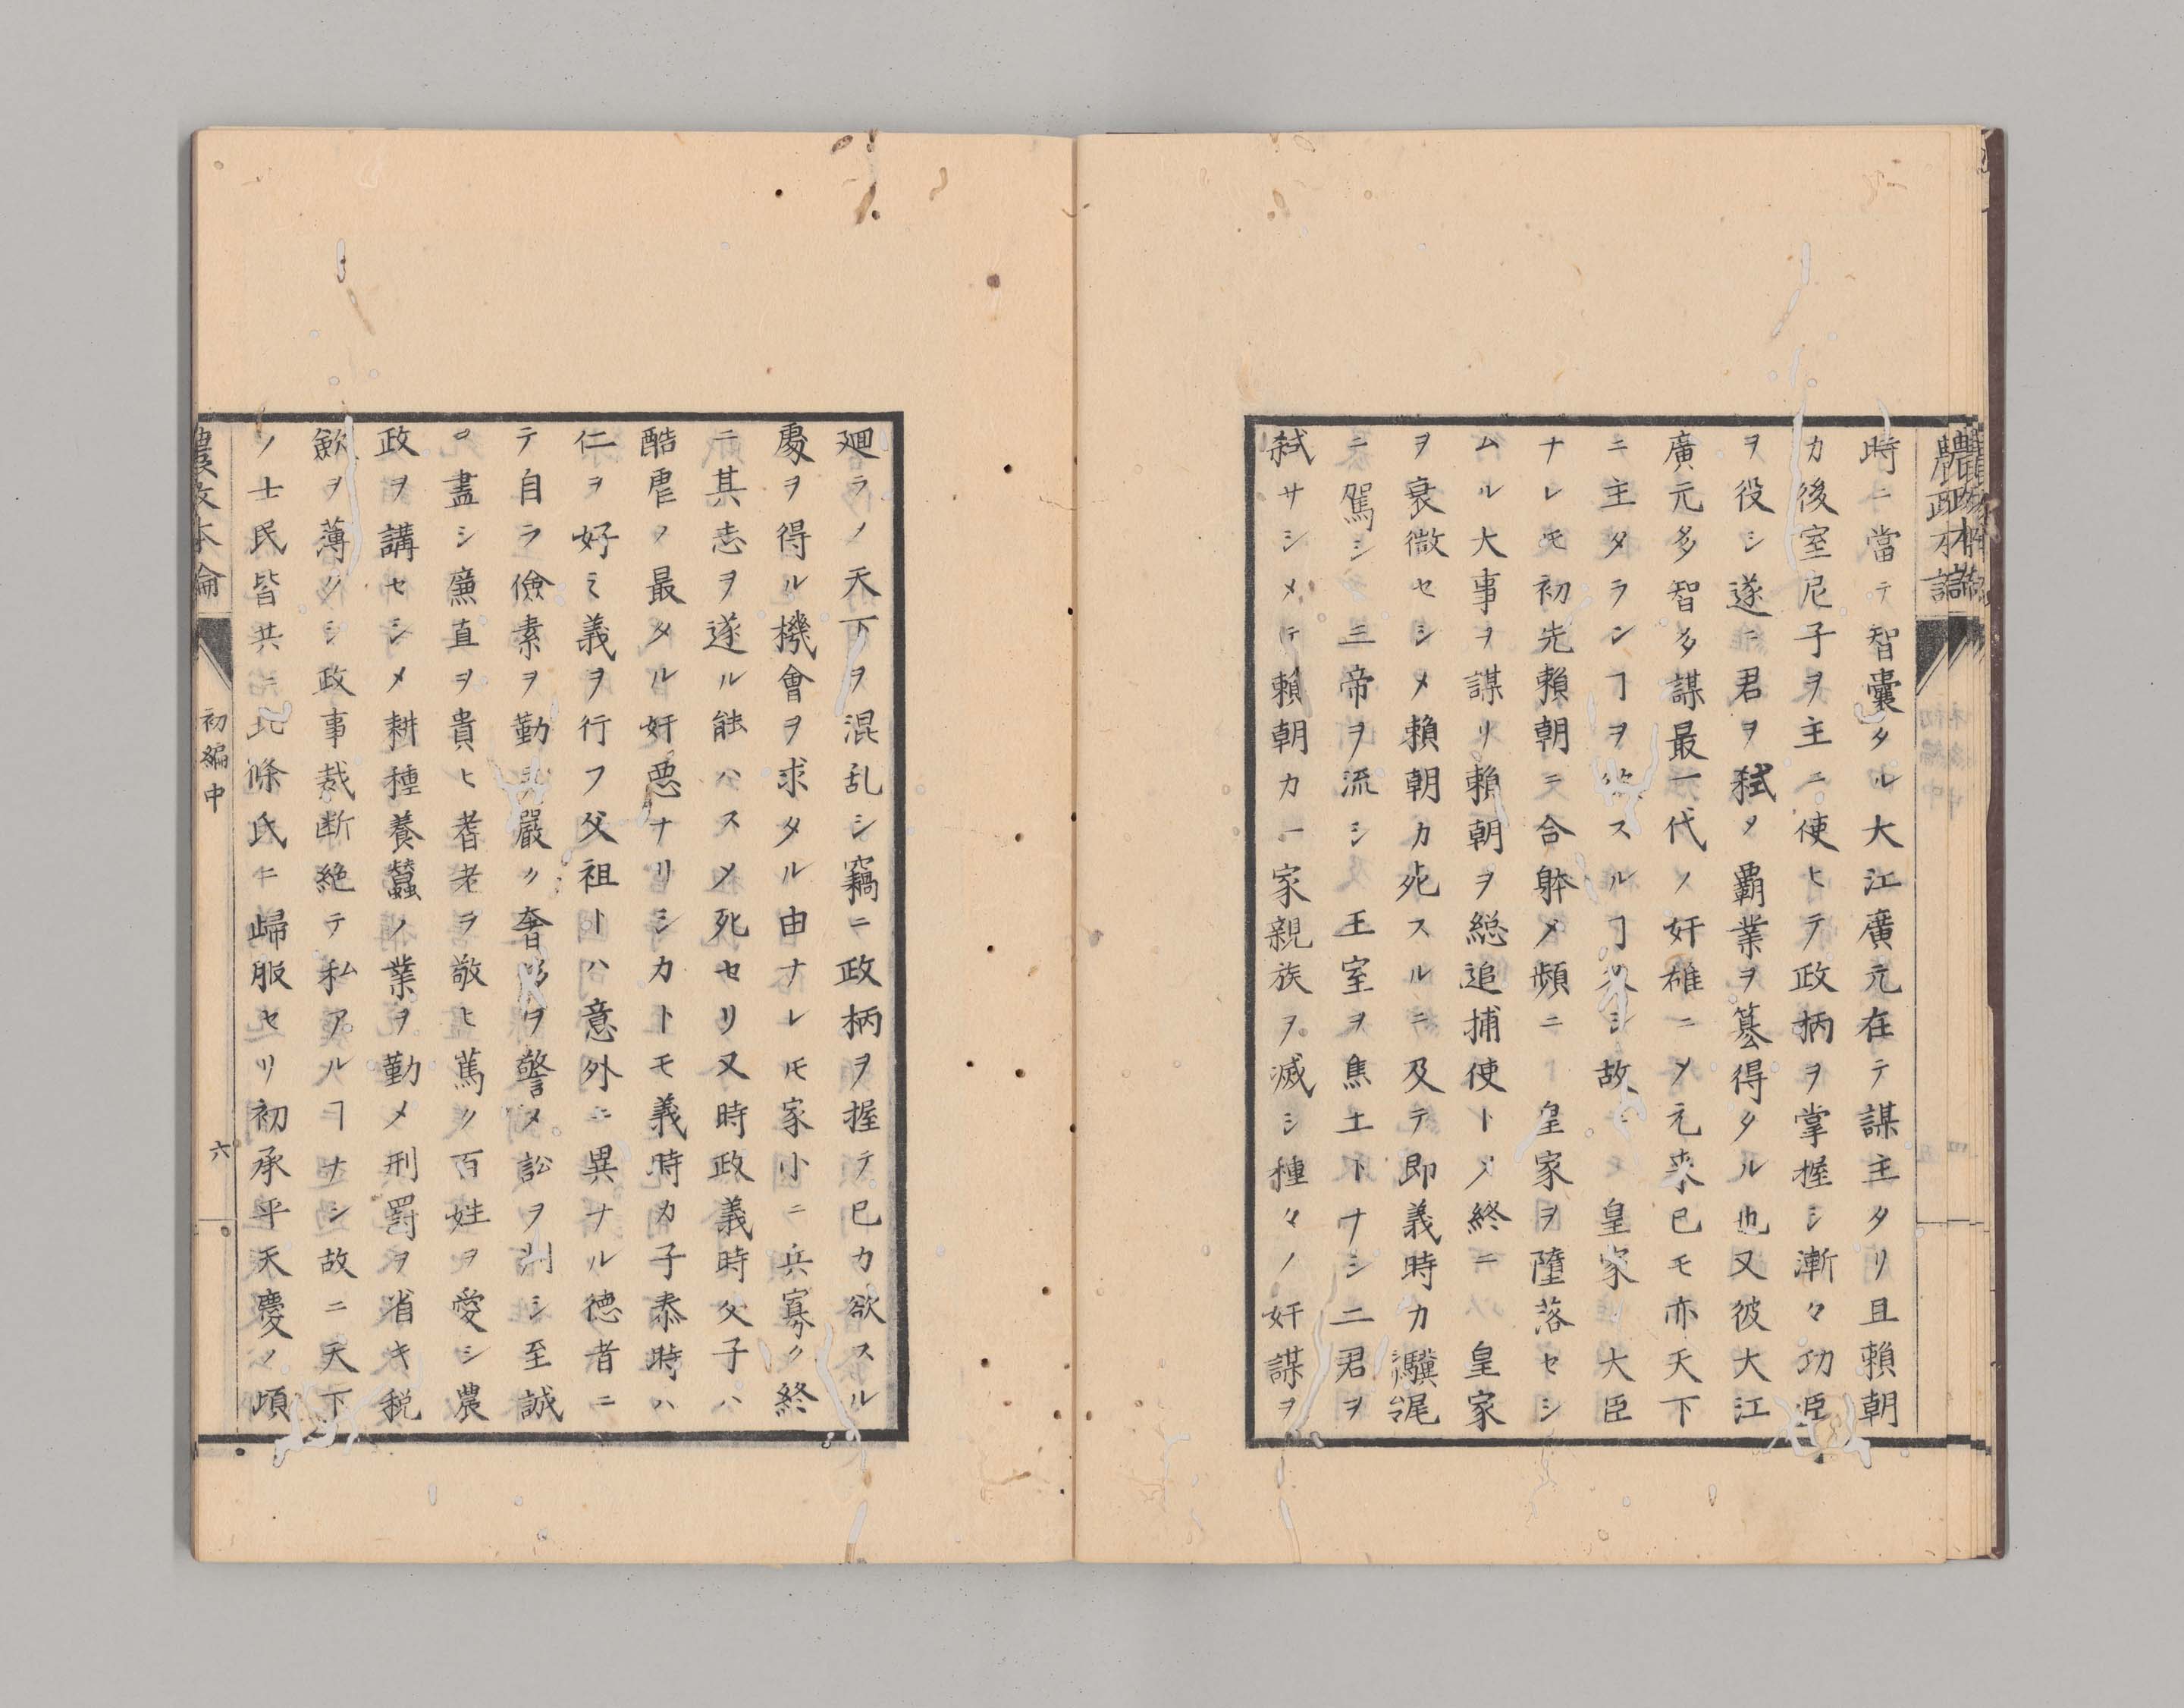 農政本論
時ニ當テ智囊タル大江廣元在テ謀主タリ且賴朝
カ後室尼子ヲ主ニ使ヒテ政柄ヲ掌握シ漸々功臣
ヲ役シ遂ニ君ヲ弑メ覇業ヲ簒得タル也又彼大江
廣元多智多謀最一代ノ奸雄ニメ元來已モ亦天下
ニ主タランヿヲ欲スルヿ久シ故ニ皇家ノ大臣
ナレ𪜈初先賴朝ニ合躰メ頻ニ皇家ヲ墮落セシ
ムル大事ヲ謀リ賴朝ヲ総追捕使トメ終ニ皇家
ヲ衰微セシメ賴朝カ死スルニ及テ即義時カ驥尾
ニ駕シ三帝ヲ流シ王室ヲ焦土トナシ二君ヲ
弑サシメテ賴朝カ一家親族ヲ滅シ種々ノ奸謀ヲ
廻ラノ天下ヲ混乱シ竊ニ政柄ヲ握テ已カ欲スル
處ヲ得ル機會ヲ求タル由ナレ𪜈家小ニ兵寡ク終
ニ其志ヲ遂ル能ハスメ死セリ又時政義時父子ハ
酷虐ノ最タル奸惡ナリシカトモ義時カ子泰時ハ
仁ヲ好ミ義ヲ行フ父祖トハ意外ニ異ナル德者ニ
テ自ラ儉素ヲ勤メ嚴ク奢侈ヲ警メ訟ヲ訓シ至誠
ヲ盡シ廉直ヲ貴ヒ耆老ヲ敬ヒ篤ク百姓ヲ愛シ農
政ヲ講セシメ耕種養蠶ノ業ヲ勤メ刑罰ヲ省キ税
斂ヲ薄クシ政事裁断絶テ私アルヿナシ故ニ天下
ノ士民皆共ニ北條氏ニ歸服セリ初承平天慶ノ頃
農政本論
初編中
六